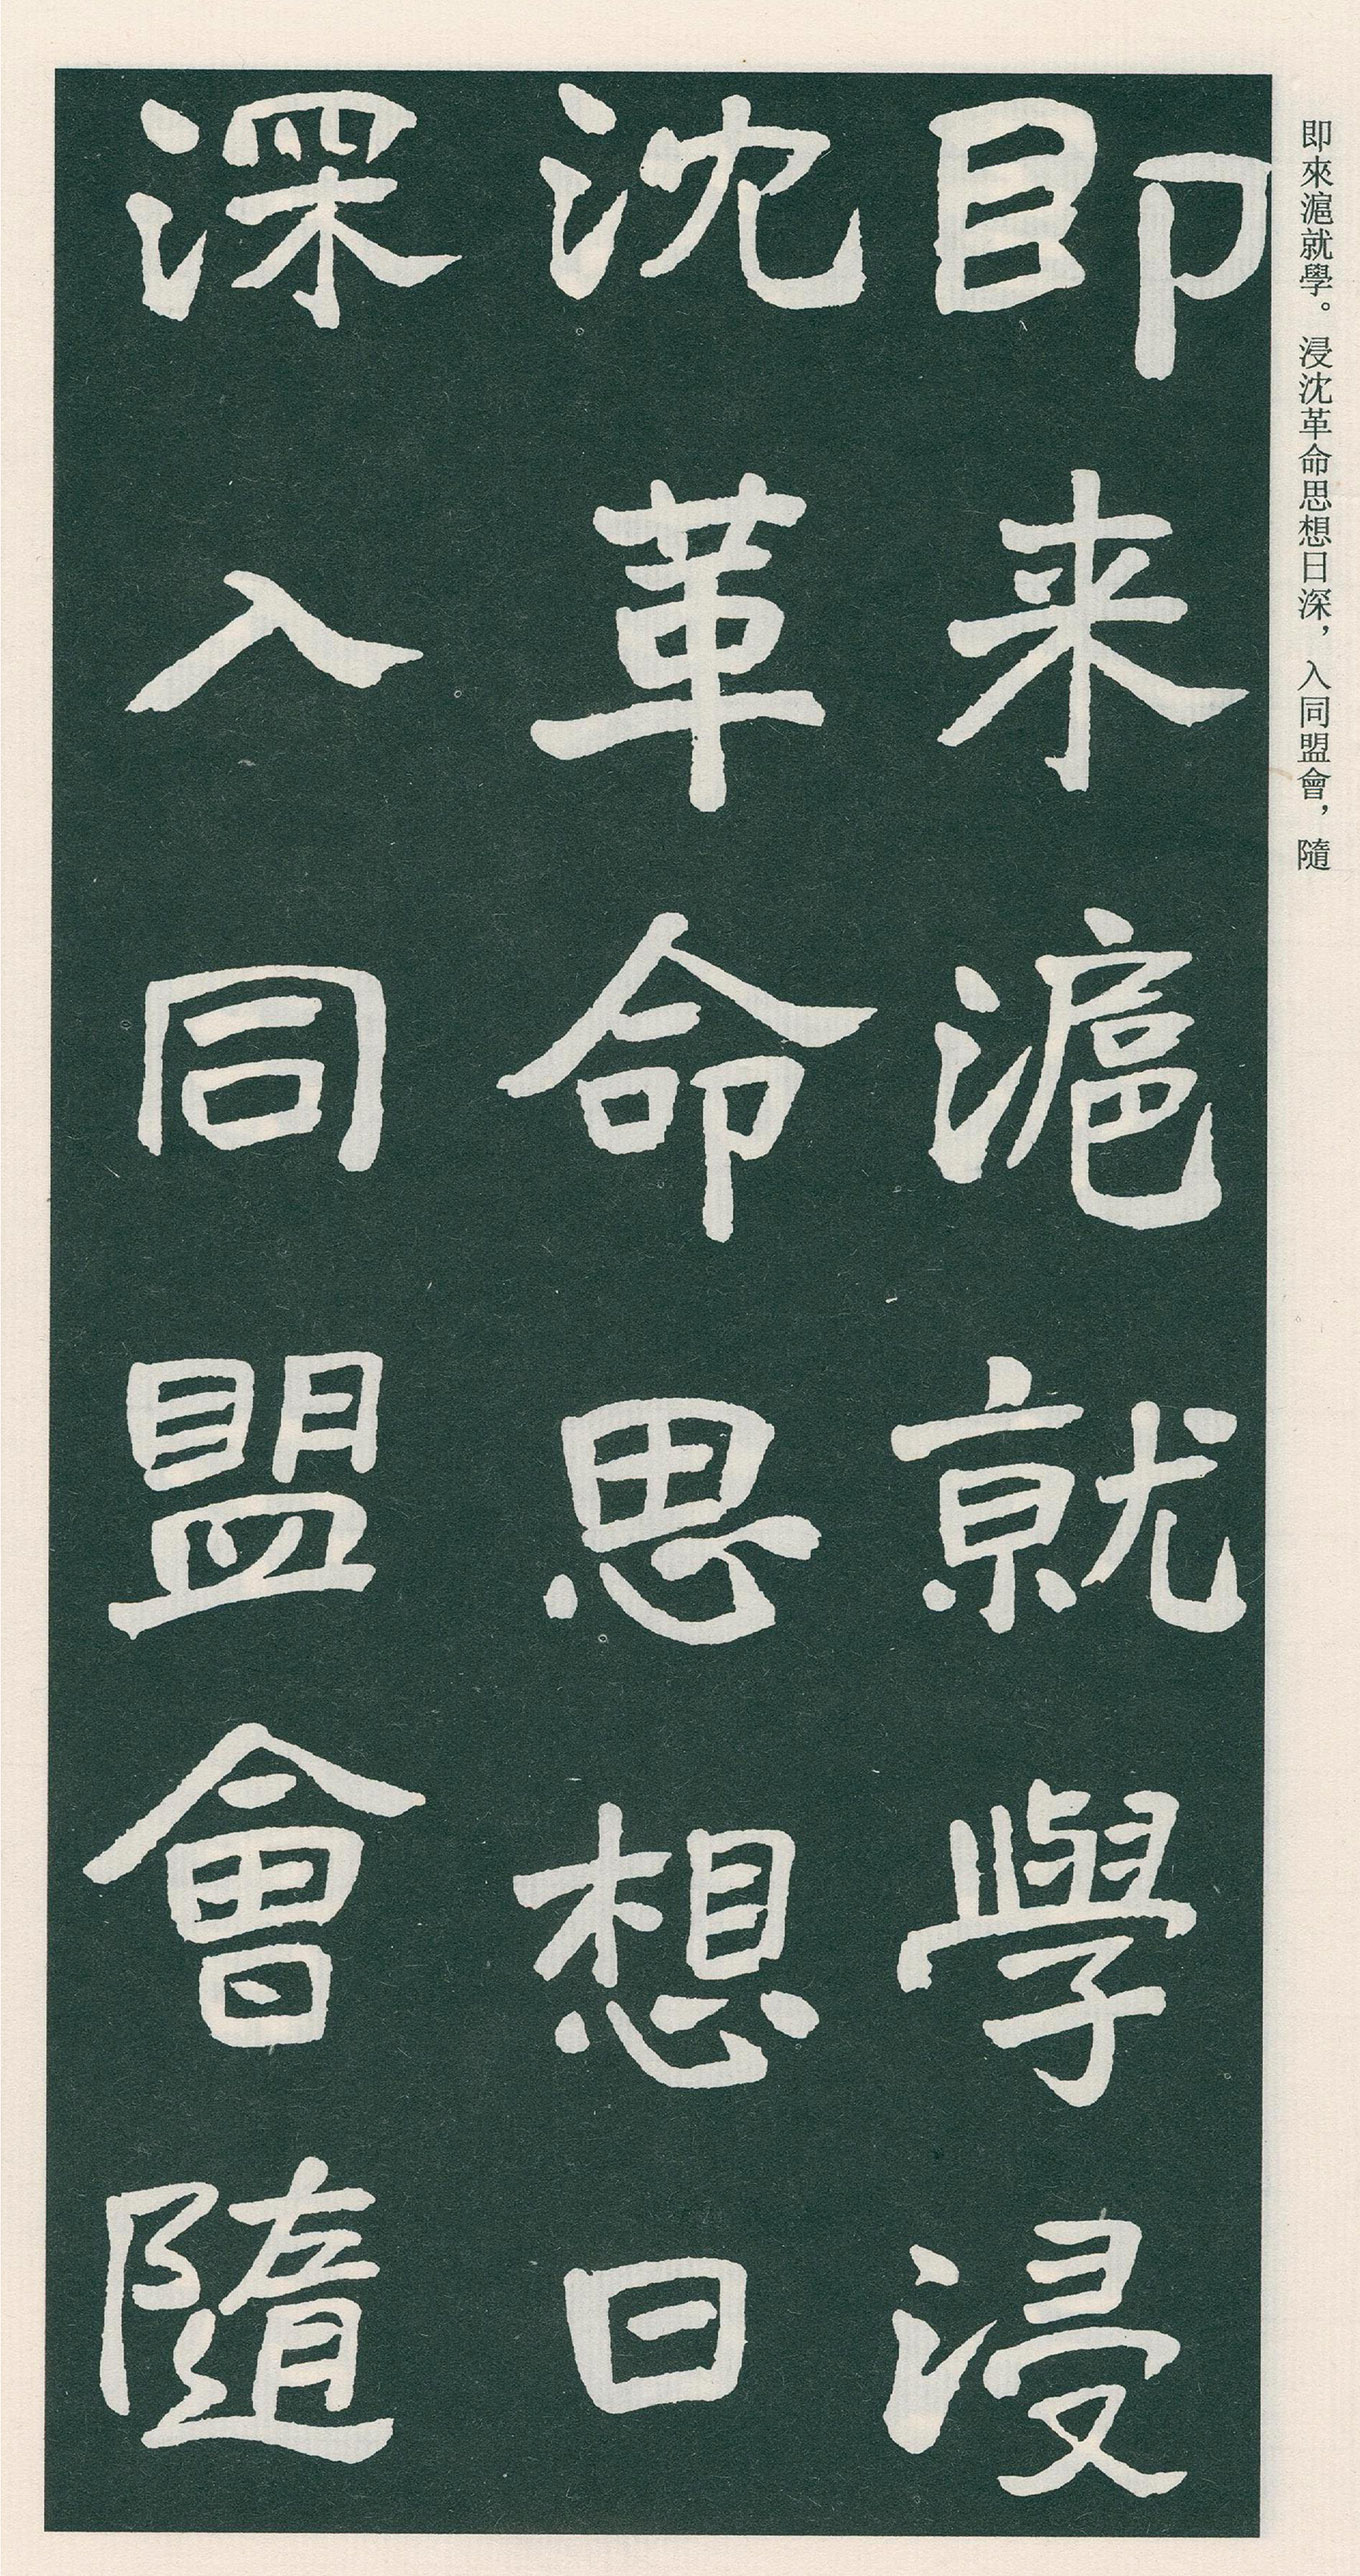 即來滬就學。浸沈革命思想日深，入同盟會，隨
即来滬就學浸
沈革命思想日
深入同盟會隨